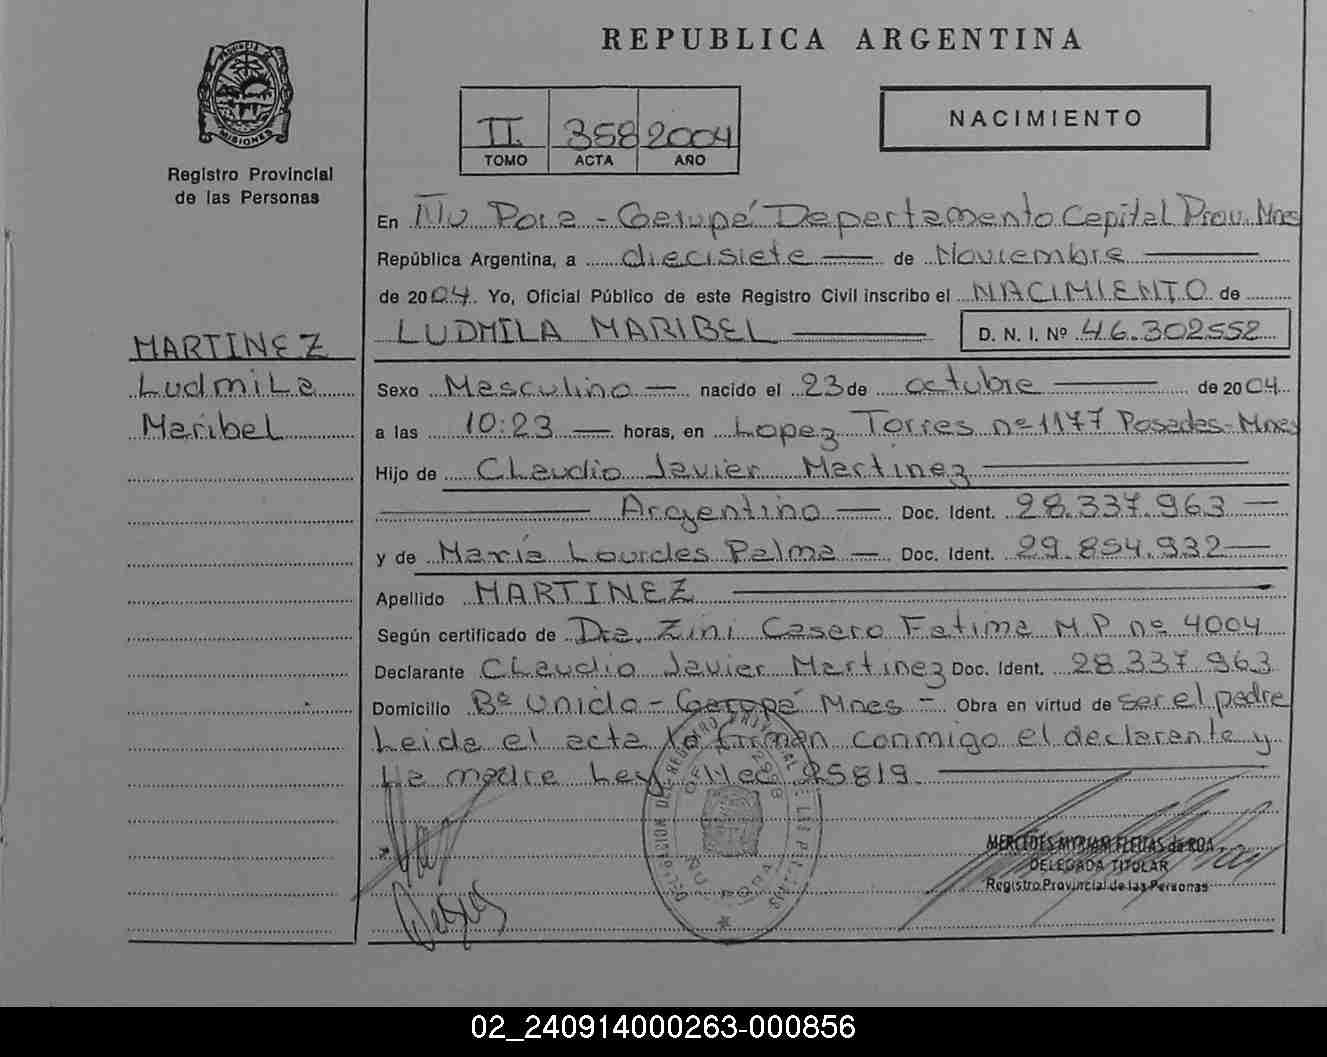 REPUBLICA ARGENTINA
PROVINCIA DE MISIONES
Registro Provincial
de las Personas
II 358 2004
TOMO ACTA AÑO
NACIMIENTO
En Ñu Pora - Garupá Departamento Capital Prov. Mnes
República Argentina, a diecisiete de Noviembre
de 2004. Yo, Oficial Público de este Registro Civil inscribo el NACIMIENTO de
LUDMILA MARIBEL D. N. I. Nº 46.302552
MARTINEZ
Ludmila
Maribel
Sexo Masculino nacido el 23 de octubre de 2004
a las 10:23 horas, en Lopez Torres nº 1177 Posadas - Mnes
Hijo de Claudio Javier Martinez
Argentino Doc. Ident. 28.337.963
y de María Lourdes Palma Doc. Ident. 29.854.932
Apellido MARTINEZ
Según certificado de Dra. Zini Casero Fatima M.P nº 4004
Declarante Claudio Javier Martinez Doc. Ident. 28.337.963
Domicilio Bº Unido - Garupá Mnes - Obra en virtud de ser el padre
Leida el acta la firman conmigo el declarante y
la madre Ley Nac 25819.
MERCEDES MYRIAM FLEITAS de ROA
DELEGADA TITULAR
Registro Provincial de las Personas
02_240914000263-000856